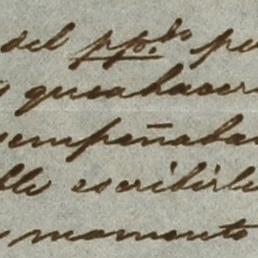 del ppdo pu
queahacer
sempeñaba
ble escribirle
momento